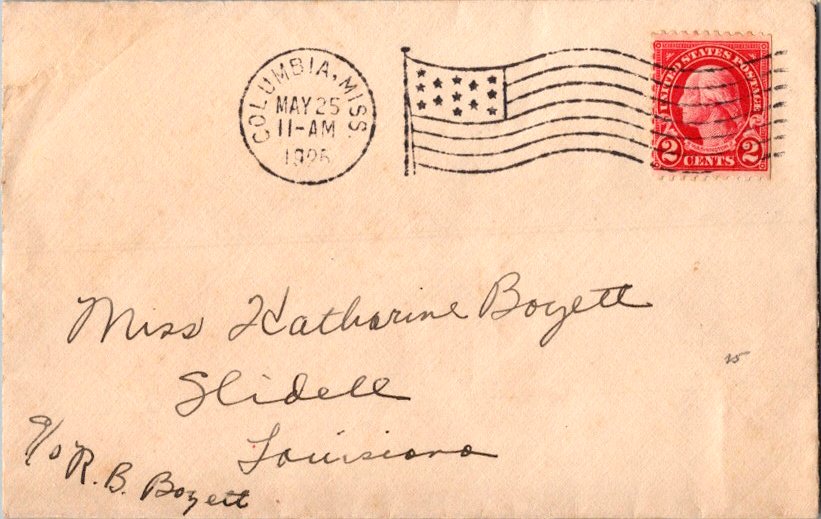 COLUMBIA, MISS.
MAY 25
11-AM
1925
UNITED STATES POSTAGE
WASHINGTON
2 CENTS 2
Miss Katharine Boyett
Slidell
Louisiana
c/o R. B. Boyett